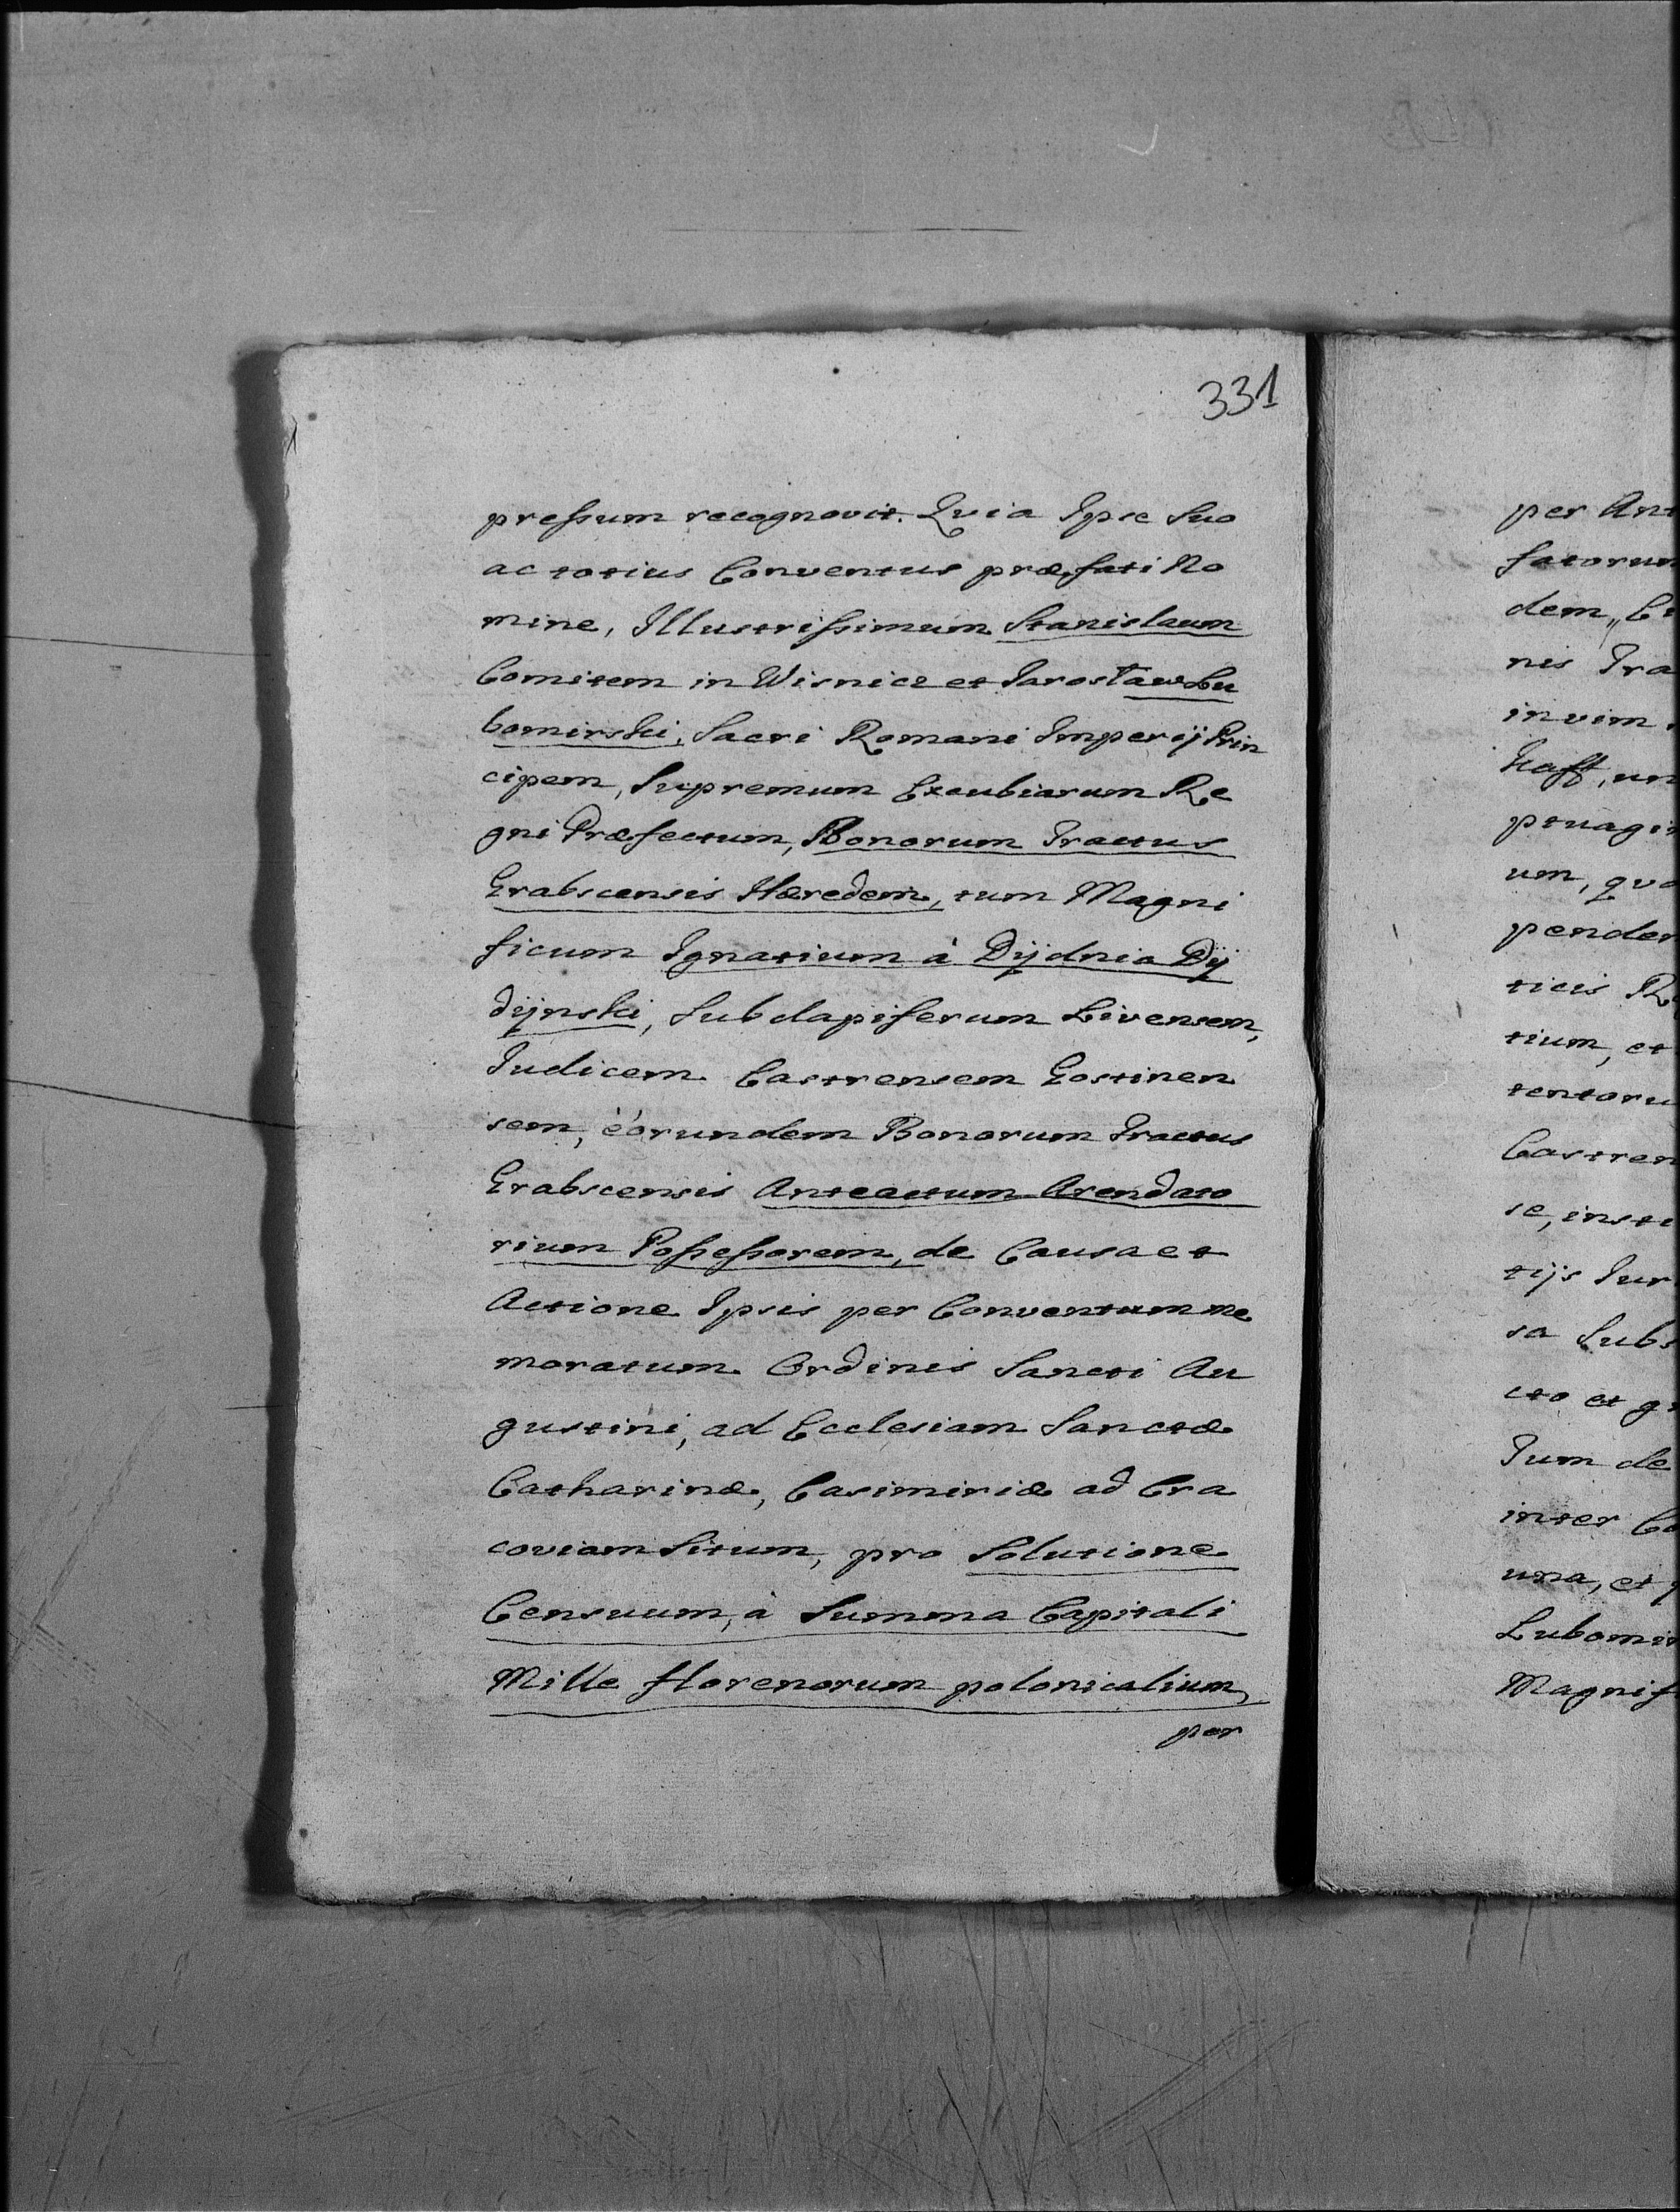 331
preſsum recognovit. Qvia Ipse Suo
ac totius Conventus præfati No
mine, Illustriſsimum Stanislaum
Comitem in Wisnicz et Jarosław Lu
bomirski, Sacri Romani Imperij Prin
cipem, Supremum Excubiarum Re
gni Præfectum, Bonorum Tractus
Grabscensis Hæredem, tum Magni
ficum Ignatium à Dÿdnia Dÿ
dÿnski, Subdapiferum Livensem,
Judicem Castrensem Gostinen
sem, eorundem Bonorum Tractus
Grabscensis Anteactum Arendato
rium Poſseſsorem, de Causa et
Actione Ipsis per Conventum me
moratum Ordinis Sancti Au
gustini, ad Ecclesiam Sanctæ
Catharinæ, Casimiriæ ad Cra
coviam Situm, pro Solutione
Censuum, à Summa Capitali
Mille florenorum polonicalium,
per
per Ant
fatorum
dem,, C
nis Tra
invim
Haft, un
ptuagin
um, qvo
penden
ticis R
tium, et
tentoru
Castren
se, insti
tijs Jur
sa Subs
cto et g
Tum de
inter Co
una, et
Lubomir
Magnif